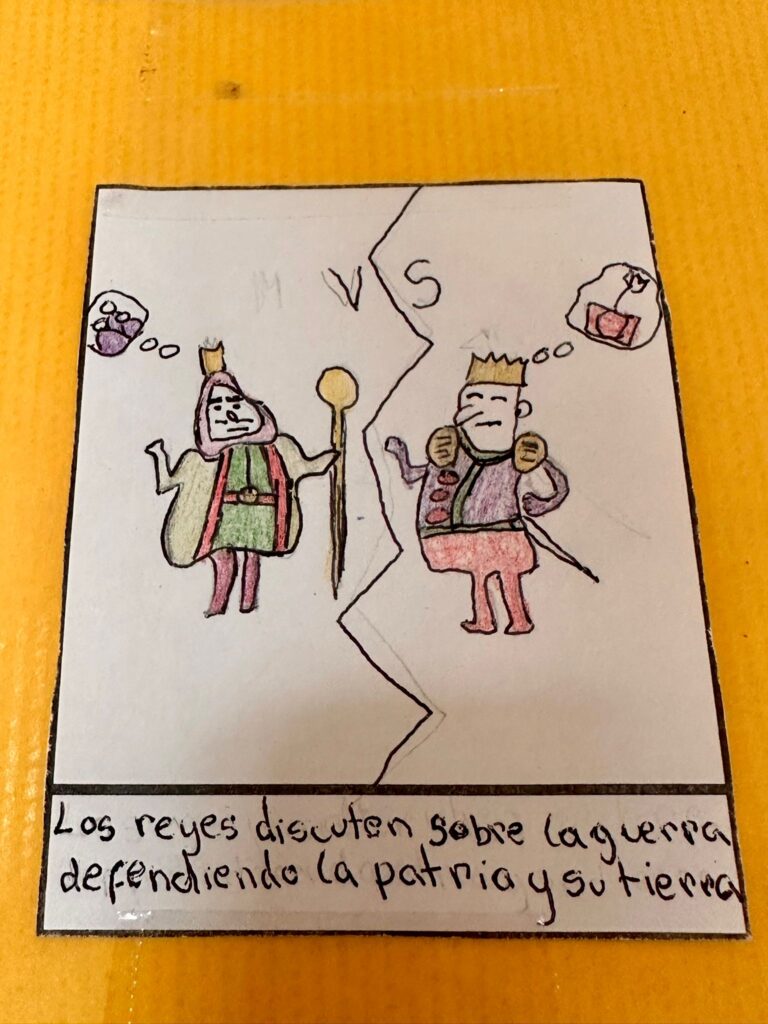 VS
Los reyes discuten sobre la guerra
defendiendo la patria y su tierra